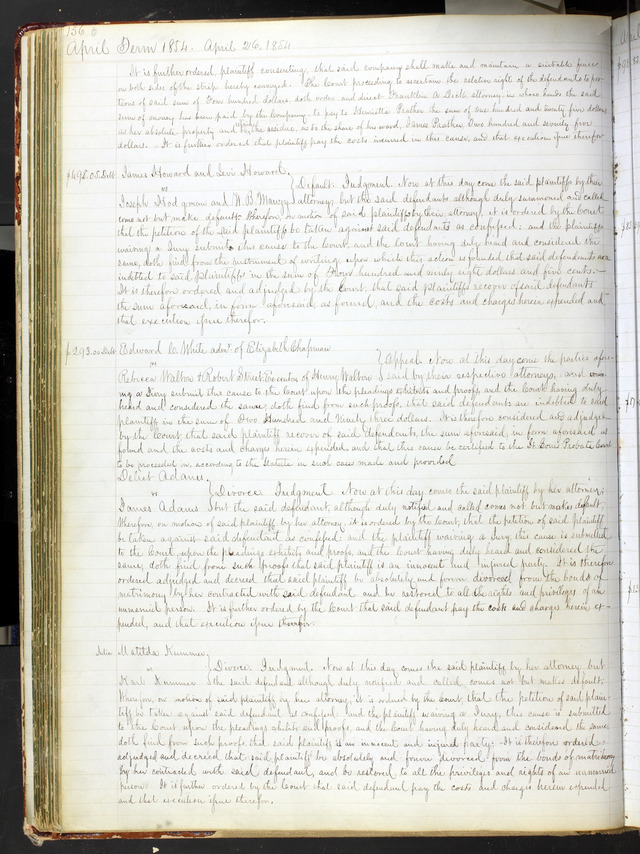 156
April Term 1854. April 26. 1854
It is further ordered, plaintiff consenting, that said company shall make and maintain a suitable fence
on both sides of the strip hereby conveyed. The Court proceeding to ascertain the relative right of the defendants to por-
tions of said sum of Four hundred dollars, doth order and direct Franklin A Dick attorney in whose hands the said
sum of money has been paid by the Company, to pay to Henrietta Prather the sum of one hundred and twenty five dollars
as her absolute property and the residue, as to the share of his ward, James Prather, Two hundred and seventy five
dollars. It is further ordered that plaintiff pay the costs incurred in this cause, and that execution issue therefor
$498.05 Debt James Howard and Levi Howard,
vs } Default. Judgment. Now at this day come the said plaintiffs by their
Joseph and W. B. attorney, but the said defendants although duly summoned and called
come not but make default: Therefore, on motion of said plaintiffs by their attorney, it is ordered by the Court
that the petition of the said plaintiffs be taken against said defendants as confessed: and the plaintiffs
waiving a Jury submit this cause to the Court and the Court having duly heard and considered the
same, doth find from the instrument of writing upon which this action is founded that said defendants are
indebted to said plaintiffs in the sum of Four hundred and ninety eight dollars and five cents.
It is therefore ordered and adjudged by the Court, that said plaintiffs recover of said defendants
the sum aforesaid, in form aforesaid, as found, and the costs and charges herein expended and
that execution issue therefor.
$293.00 Debt Edward C. White admr. of Elizabeth Chapman
vs } Appeal. Now at this day come the parties afore-
Rebecca Walton & Robert Street Executors of Henry Walton said by their respective attorneys, and waiv-
ing a Jury submit this cause to the Court upon the pleadings exhibits and proofs, and the Court having duly
heard and considered the same, doth find from such proofs, that said defendants are indebted to said
plaintiff in the sum of Two Hundred and Ninety three dollars. It is therefore considered and adjudged
by the Court that said plaintiff recover of said defendants, the sum aforesaid, in form aforesaid as
found and the costs and charges herein expended and that this cause be certified to the St Louis Probate Court
to be proceeded in, according to the Statute in such cases made and provided
Adams,
vs } Divorce. Judgment. Now at this day comes the said plaintiff by her attorney,
James Adams but the said defendant, although duly notified and called comes not but makes default;
therefore, on motion of said plaintiff by her attorney, it is ordered by the Court, that the petition of said plaintiff
be taken against said defendant as confessed: and the plaintiff waiving a Jury, this cause is submitted
to the Court, upon the pleadings exhibits and proofs, and the Court having duly heard and considered the
same, doth find from such proofs that said plaintiff is an innocent and injured party. It is therefore
ordered adjudged and decreed that said plaintiff be absolutely and forever divorced from the bonds of
matrimony by her contracted with said defendant and be restored to all the rights and privileges of an
unmarried person. It is further ordered by the Court that said defendant pay the costs and charges herein ex-
pended, and that execution issue therefor.
Matilda Kummer,
vs } Divorce. Judgment. Now at this day comes the said plaintiff by her attorney but
Karl Kummer the said defendant although duly notified and called comes not but makes default:
Wherefore, on motion of said plaintiff by her attorney, it is ordered by the Court, that the petition of said plain-
tiff be taken against said defendant as confessed: and the plaintiff waiving a Jury, this cause is submitted
to the Court upon the pleadings exhibits and proofs, and the Court having duly heard and considered the same
doth find from such proofs, that said plaintiff is an innocent and injured party: It is therefore ordered
adjudged and decreed that said plaintiff be absolutely and forever divorced from the bonds of matrimony
by her contracted with said defendant, and be restored to all the privileges and rights of an unmarried
person. It is further ordered by the Court that said defendant pay the costs and charges herein expended
and that execution issue therefor.